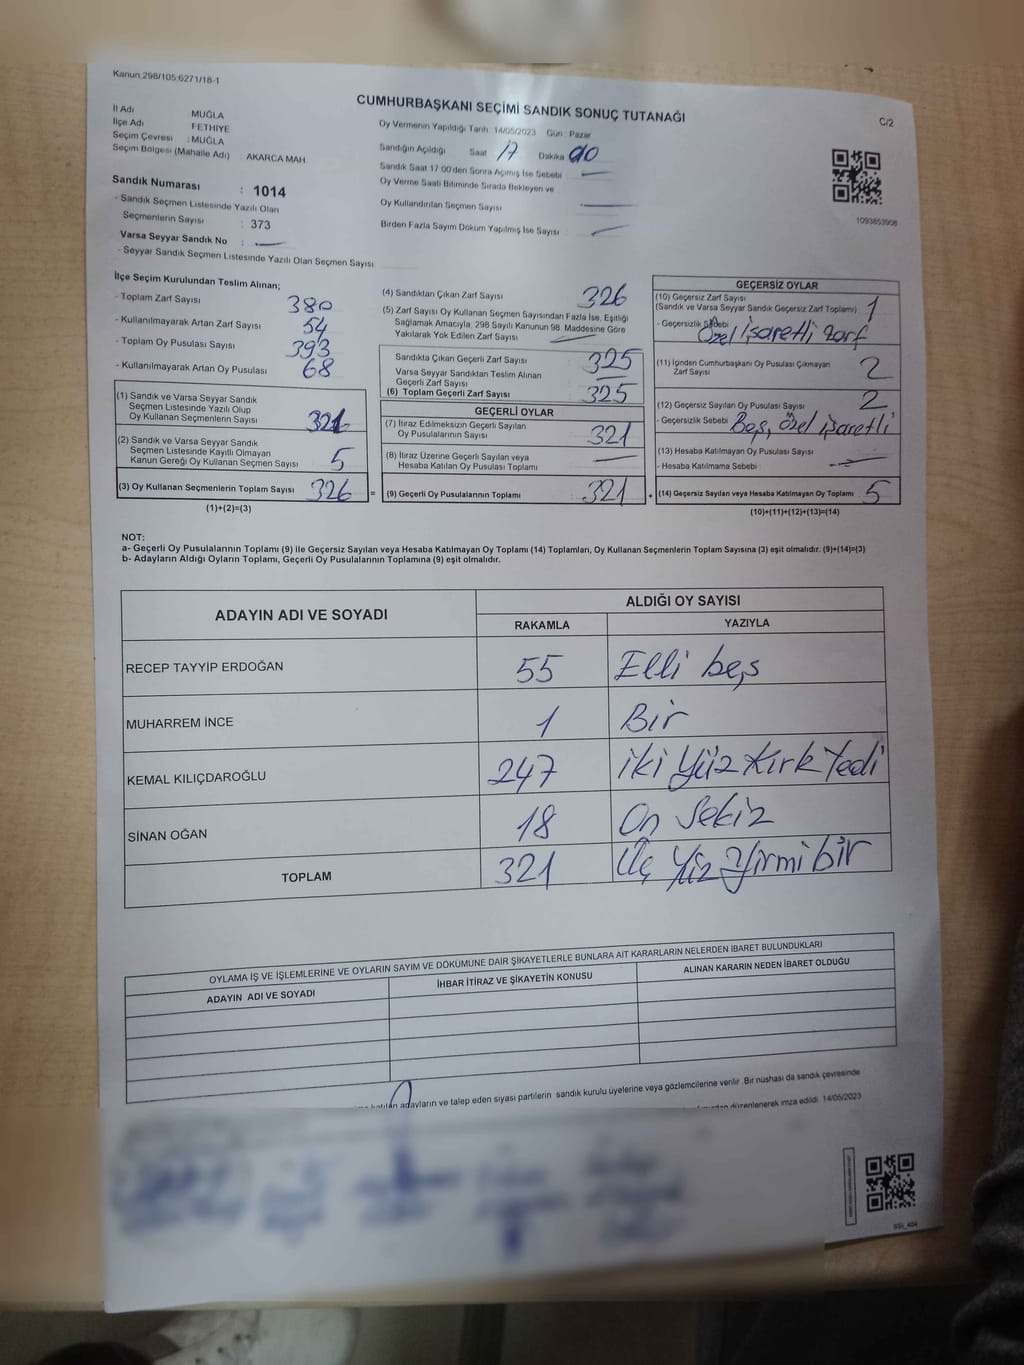 Kanun.298/105,6271/18-1
CUMHURBAŞKANI SEÇİMİ SANDIK SONUÇ TUTANAĞI
C/2
İl Adı MUĞLA
İlçe Adı FETHİYE
Seçim Çevresi : MUĞLA
Seçim Bölgesi (Mahalle Adı) : AKARCA MAH.
Sandık Numarası : 1014
- Sandık Seçmen Listesinde Yazılı Olan
Seçmenlerin Sayısı : 373
Varsa Seyyar Sandık No : —
- Seyyar Sandık Seçmen Listesinde Yazılı Olan Seçmen Sayısı
Oy Vermenin Yapıldığı Tarih 14/05/2023 Gün : Pazar
Sandığın Açıldığı Saat 17 Dakika 00
Sandık Saat 17:00'den Sonra Açılmış İse Sebebi : —
Oy Verme Saati Bitiminde Sırada Bekleyen ve
Oy Kullandırılan Seçmen Sayısı : —
Birden Fazla Sayım Döküm Yapılmış İse Sayısı : —
1093853908
İlçe Seçim Kurulundan Teslim Alınan;
- Toplam Zarf Sayısı 380
- Kullanılmayarak Artan Zarf Sayısı 54
- Toplam Oy Pusulası Sayısı 393
- Kullanılmayarak Artan Oy Pusulası 68
(1) Sandık ve Varsa Seyyar Sandık
Seçmen Listesinde Yazılı Olup
Oy Kullanan Seçmenlerin Sayısı 321
(2) Sandık ve Varsa Seyyar Sandık
Seçmen Listesinde Kayıtlı Olmayan
Kanun Gereği Oy Kullanan Seçmen Sayısı 5
(3) Oy Kullanan Seçmenlerin Toplam Sayısı 326 =
(1)+(2)=(3)
(4) Sandıktan Çıkan Zarf Sayısı 326
(5) Zarf Sayısı Oy Kullanan Seçmen Sayısından Fazla İse, Eşitliği
Sağlamak Amacıyla, 298 Sayılı Kanunun 98. Maddesine Göre
Yakılarak Yok Edilen Zarf Sayısı —
Sandıkta Çıkan Geçerli Zarf Sayısı 325
Varsa Seyyar Sandıktan Teslim Alınan
Geçerli Zarf Sayısı —
(6) Toplam Geçerli Zarf Sayısı 325
GEÇERLİ OYLAR
(7) İtiraz Edilmeksizin Geçerli Sayılan
Oy Pusulalarının Sayısı 321
(8) İtiraz Üzerine Geçerli Sayılan veya
Hesaba Katılan Oy Pusulası Toplamı —
(9) Geçerli Oy Pusulalarının Toplamı 321 +
GEÇERSİZ OYLAR
(10) Geçersiz Zarf Sayısı
(Sandık ve Varsa Seyyar Sandık Geçersiz Zarf Toplamı) 1
- Geçersizlik Sebebi Özel İşaretli Zarf
(11) İçinden Cumhurbaşkanı Oy Pusulası Çıkmayan
Zarf Sayısı 2
(12) Geçersiz Sayılan Oy Pusulası Sayısı 2
- Geçersizlik Sebebi Boş, Özel işaretli
(13) Hesaba Katılmayan Oy Pusulası Sayısı
- Hesaba Katılmama Sebebi : —
(14) Geçersiz Sayılan veya Hesaba Katılmayan Oy Toplamı 5
(10)+(11)+(12)+(13)=(14)
NOT:
a- Geçerli Oy Pusulalarının Toplamı (9) ile Geçersiz Sayılan veya Hesaba Katılmayan Oy Toplamı (14) Toplamları, Oy Kullanan Seçmenlerin Toplam Sayısına (3) eşit olmalıdır. (9)+(14)=(3)
b- Adayların Aldığı Oyların Toplamı, Geçerli Oy Pusulalarının Toplamına (9) eşit olmalıdır.
ADAYIN ADI VE SOYADI
ALDIĞI OY SAYISI
RAKAMLA YAZIYLA
RECEP TAYYİP ERDOĞAN 55 Elli beş
MUHARREM İNCE 1 Bir
KEMAL KILIÇDAROĞLU 247 iki Yüz Kırk Yedi
SİNAN OĞAN 18 On Sekiz
TOPLAM 321 Üç Yüz Yirmi bir
OYLAMA İŞ VE İŞLEMLERİNE VE OYLARIN SAYIM VE DÖKÜMÜNE DAİR ŞİKAYETLERLE BUNLARA AİT KARARLARIN NELERDEN İBARET BULUNDUKLARI
ADAYIN ADI VE SOYADI İHBAR İTİRAZ VE ŞİKAYETİN KONUSU ALINAN KARARIN NEDEN İBARET OLDUĞU
katılan adayların ve talep eden siyasi partilerin sandık kurulu üyelerine veya gözlemcilerine verilir. Bir nüshası da sandık çevresinde
düzenlenerek imza edildi. 14/05/2023